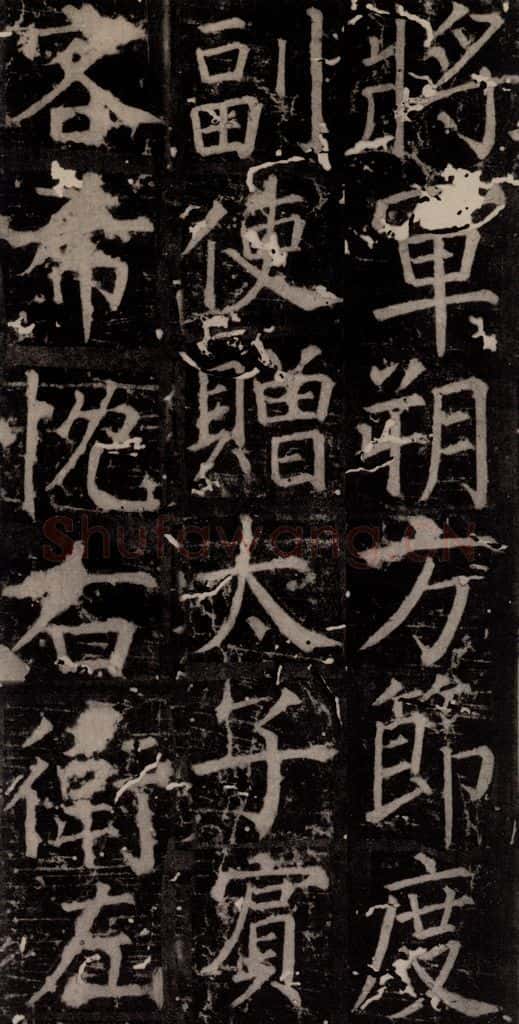 將軍朔方節度
副使贈太子賓
客希右衛左
Shufawang.CN